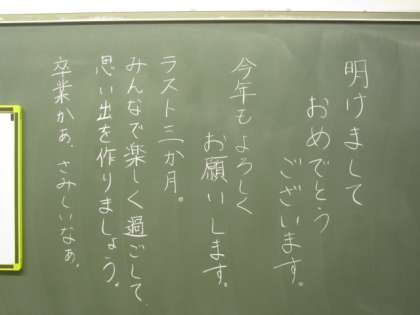 明けまして
おめでとう
ございます。
今年もよろしく
お願いします。
ラスト三か月。
みんなで楽しく過ごして、
思い出を作りましょう。
卒業かぁ。さみしいなぁ。